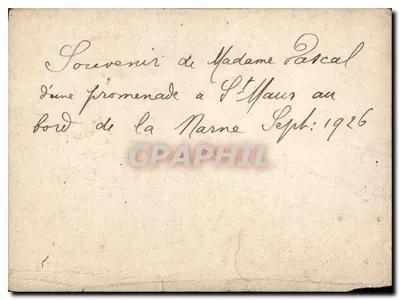 Souvenir de Madame Pascal
d'une promenade a St Maur au
bord de la Marne Sept: 1926
CPAPHIL
www.cpaphil.com